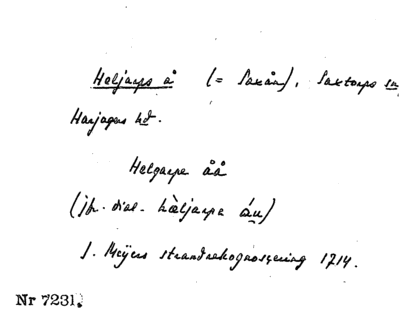 Häljarps å (= Saxån), Saxtorps sn
Harjagers hd.
Helgarpe åå
(jfr. dial. hàljarpa áu)
J. Meijers strandrekognoscering 1714.
Nr 7231.